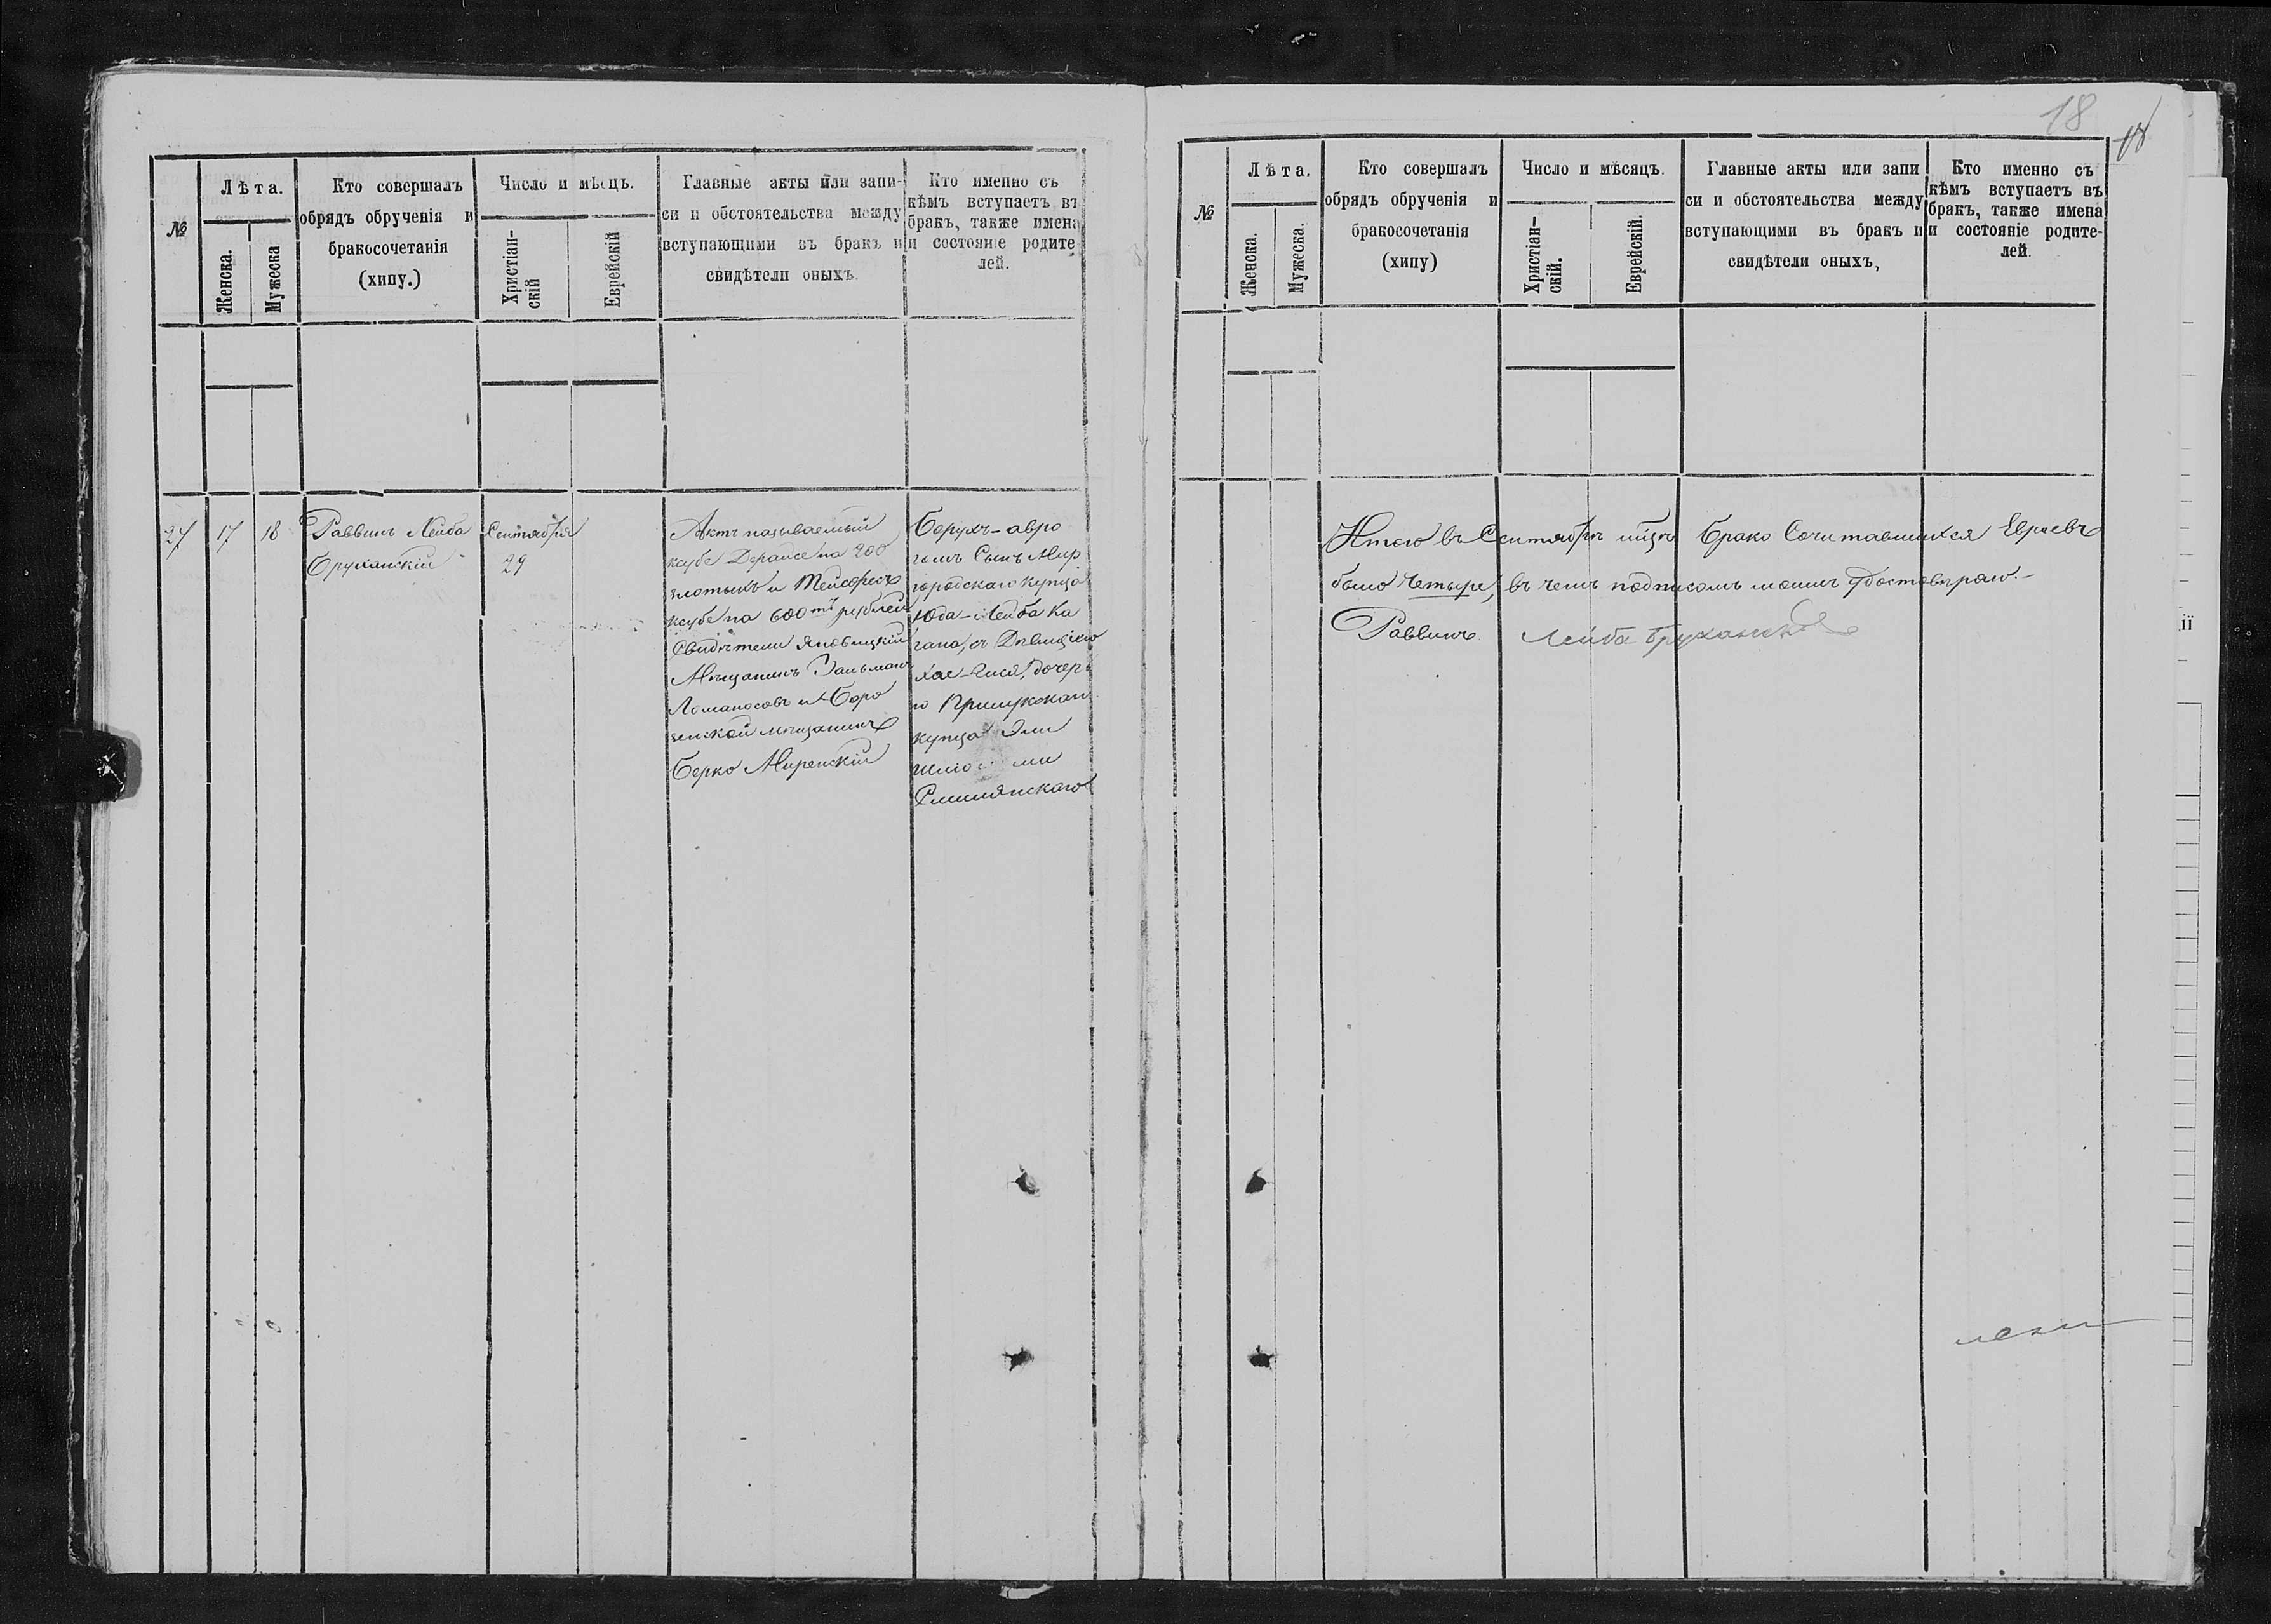 18
№
Лѣта.
Женска.
Мужеска
Кто совершалъ
обрядъ обрученія и
бракосочетанія
(хипу.)
Число и мѣсцъ.
Христіан-
скій
Еврейскій
Главные акты или запи-
си и обстоятельства между
вступающими въ бракъ и
свидѣтели оныхъ.
Кто именно съ
кѣмъ вступаетъ въ
бракъ, также имена
и состояніе родите
лей.
27 17 18
Раввинъ Лейба
Бруханскій
Сентября
29
Актъ называемый
ксубе Дерайсе на 200
злотыхъ и Тейсефесъ
ксубе на 600тъ рублей
Свидѣтели Яновицкій
Мѣщанинъ Зальманъ
Ломаносовъ и Боро
зенской мѣщанинъ
Берко Миренскій
Берухъ-авро
гамъ Сынъ Мир
городскаго купца
Юда-Лейба Ка
гана, съ Дѣвицею
Хае-Лися, дочерь
ю Прилукскаго
купца Эли
Смилянскаго
№
Лѣта.
Женска.
Мужеска.
Кто совершалъ
обрядъ обрученія и
бракосочетанія
(хипу)
Число и мѣсяцъ.
Христіан-
скій.
Еврейскій.
Главные акты или запи
си и обстоятельства между
вступающими въ бракъ и
свидѣтели оныхъ,
Кто именно съ
кѣмъ вступаетъ въ
бракъ, также имена
и состояніе родите-
лей.
Итого въ Сентябрѣ мѣцѣ брако Сочитавшихся Евреевъ
было Четыре, въ чемъ подписомъ моимъ Удостовѣряю.-
Раввинъ. Лейба Бруханскій
ії